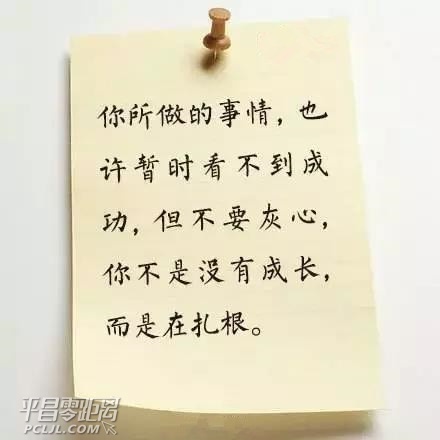 你所做的事情，也
许暂时看不到成
功，但不要灰心，
你不是没有成长，
而是在扎根。
平昌零距离
PCLJL.COM